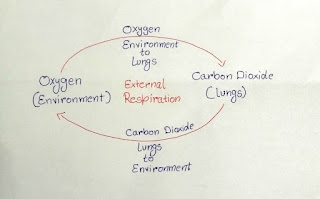 Oxygen
Environment
to
Lungs
Oxygen
(Environment)
External
Respiration
Carbon Dioxide
(Lungs)
Carbon Dioxide
Lungs
to
Environment